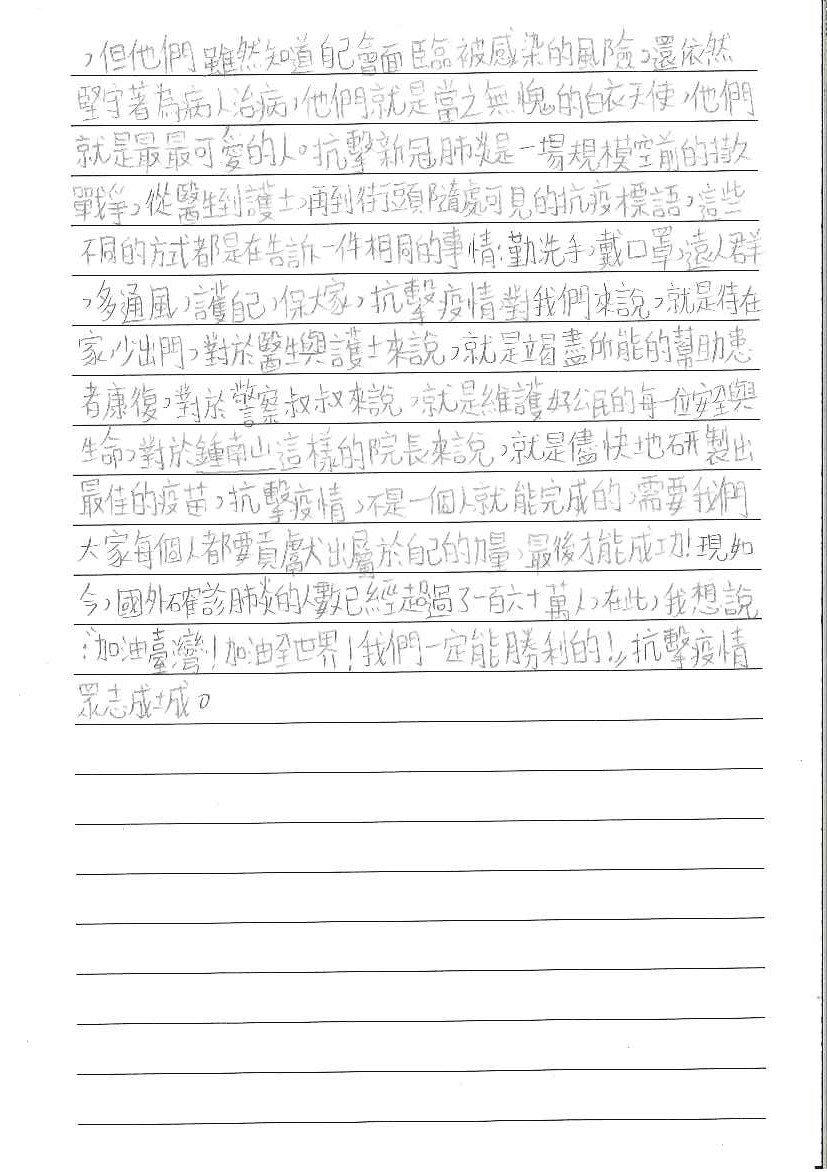 ，但他們雖然知道自己會面臨被感染的風險，還依然
堅守著為病人治病，他們就是當之無愧的白衣天使，他們
就是最最可愛的人。抗擊新冠肺炎是一場規模空前的
戰爭，從醫生到護士，再到街頭隨處可見的抗疫標語，這些
不同的方式都是在告訴一件相同的事情：勤洗手，戴口罩，遠人群
，多通風，護自己，保大家，抗擊疫情對我們來說，就是待在
家，少出門，對於醫生與護士來說，就是竭盡所能的幫助患
者康復，對於警察叔叔來說，就是維護好公民的每一位安全與
生命，對於鍾南山這樣的院長來說，就是儘快地研製出
最佳的疫苗，抗擊疫情，不是一個人就能完成的，需要我們
大家每個人都要貢獻出屬於自己的力量，最後才能成功！現如
今，國外確診肺炎的人數已經超過了一百六十萬人，在此，我想說
：加油臺灣！加油全世界！我們一定能勝利的！」抗擊疫情
眾志成城。